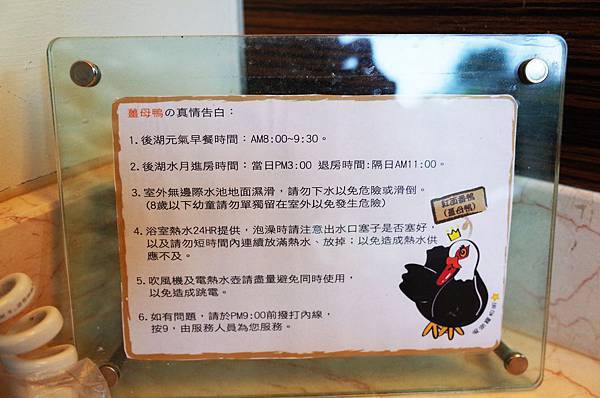 薑母鴨の真情告白：
1.後湖元氣早餐時間：AM8:00~9:30。
2.後湖水月進房時間：當日PM3:00 退房時間:隔日AM11:00。
3.室外無邊際水池地面濕滑，請勿下水以免危險或滑倒。
(8歲以下幼童請勿單獨留在室外以免發生危險)
4.浴室熱水24HR提供，泡澡時請注意出水口塞子是否塞好，
以及請勿短時間內連續放滿熱水、放掉；以免造成熱水供
應不及。
5.吹風機及電熱水壺請盡量避免同時使用，
以免造成跳電。
6.如有問題，請於PM9:00前撥打內線，
按9，由服務人員為您服務。
紅面番鴨
(薑母鴨)